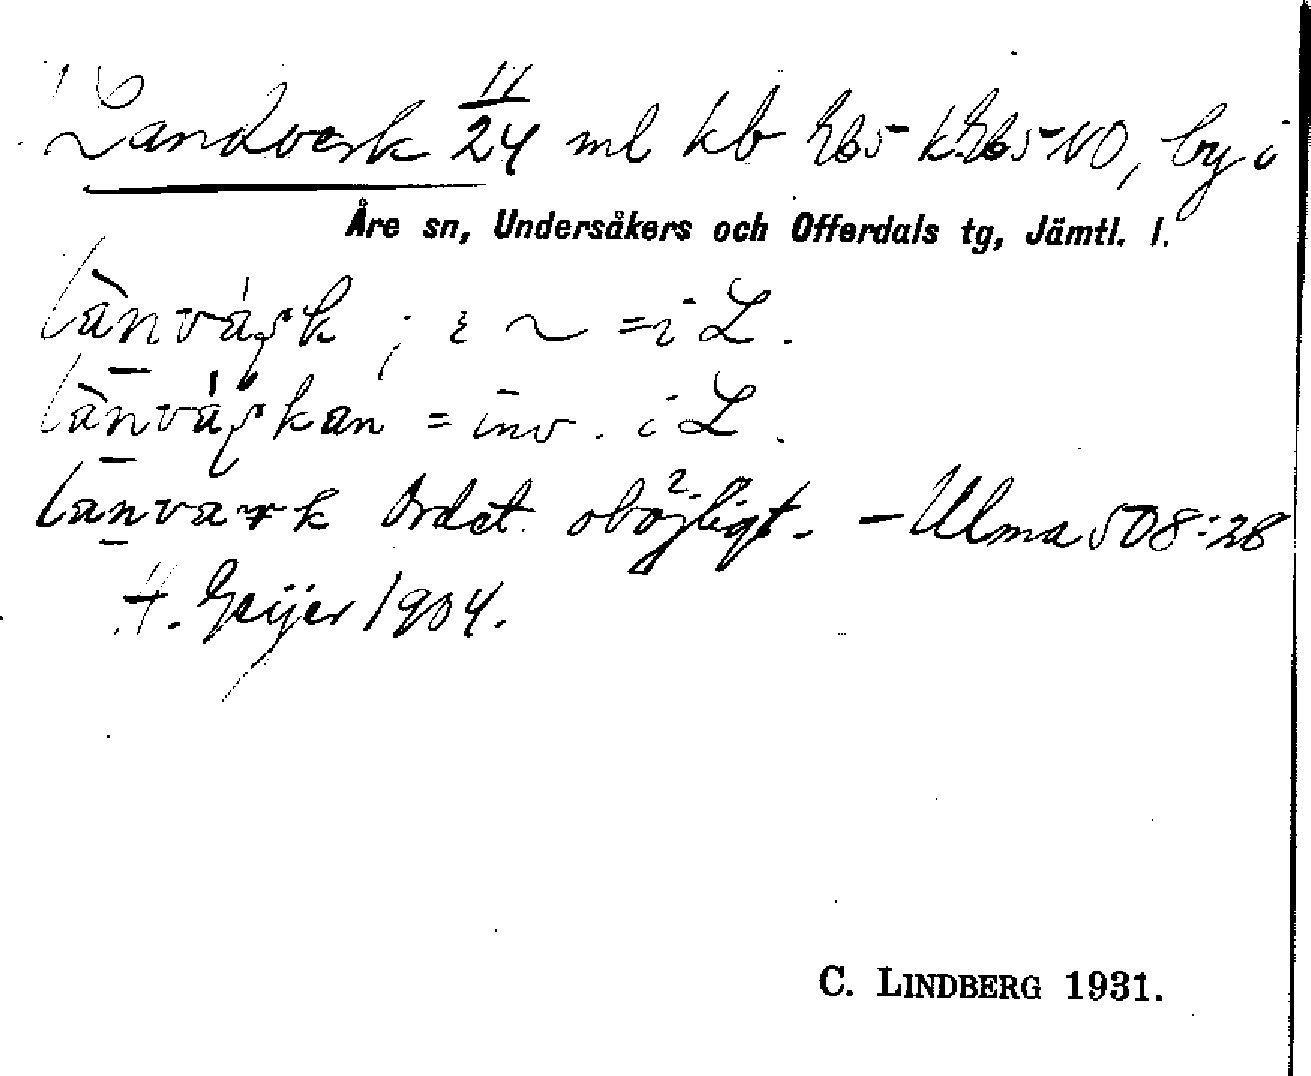 Landverk 11/24 ml kb Eb5 k.Eb5-NO, by i
Åre sn, Undersåkers och Offerdals tg, Jämtl. l.
länvàrk ; i ~ = i L.
länvàrkan = inv. i L.
lanvark Ordet oböjligt. – Ulma 508:28
H. Geijer 1904.
C. LINDBERG 1931.